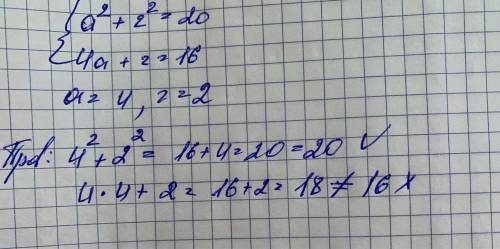 a² + z² = 20
4a + z = 16
a = 4, z = 2
Пров: 4² + 2² = 16 + 4 = 20 = 20 ✓
4 · 4 + 2 = 16 + 2 = 18 ≠ 16 ×